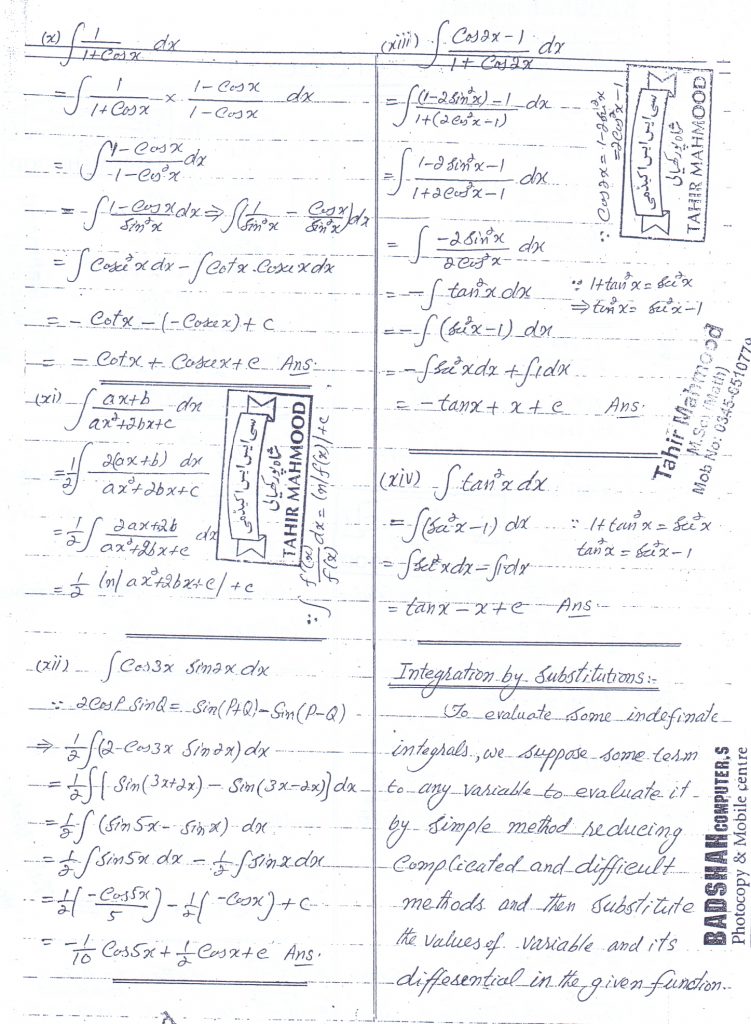 (x) ∫ 1/(1+Cosx) dx
= ∫ 1/(1+Cosx) × (1-Cosx)/(1-Cosx) dx
= ∫ (1-Cosx)/(1-Cos²x) dx
= ∫ (1-Cosx)/(Sin²x) dx ⇒ ∫(1/Sin²x - Cosx/Sin²x) dx
= ∫ Cosec²x dx - ∫ Cotx.Cosecx dx
= - Cotx - (-Cosecx) + c
= = Cotx + Cosecx + c Ans.
(xi) ∫ (ax+b)/(ax²+2bx+c) dx
= 1/2 ∫ 2(ax+b) dx/(ax²+2bx+c)
= 1/2 ∫ (2ax+2b)/(ax²+2bx+c) dx
= 1/2 ln|ax²+2bx+c| + c
∵ ∫ f'(x)/f(x) dx = ln|f(x)|+c
سی ایس ایس اکیڈمی
TAHIR MAHMOOD
(xii) ∫ Cos3x Sin2x dx
∵ 2CosP SinQ = Sin(P+Q) - Sin(P-Q)
⇒ 1/2 ∫(2-Cos3x Sin2x) dx
= 1/2 ∫[Sin(3x+2x) - Sin(3x-2x)] dx
= 1/2 ∫ (Sin5x - Sinx) dx
= 1/2 ∫ Sin5x dx - 1/2 ∫ Sinx dx
= 1/2(-Cos5x/5) - 1/2(-Cosx) + C
= -1/10 Cos5x + 1/2 Cosx + c Ans.
(xiii) ∫ (Cos2x-1)/(1+Cos2x) dx
= ∫ ((1-2Sin²x)-1)/(1+(2Cos²x-1)) dx
= ∫ (1-2Sin²x-1)/(1+2Cos²x-1) dx
= ∫ -2Sin²x/2Cos²x dx
= - ∫ tan²x dx ∵ 1+tan²x = Sec²x
⇒ tan²x = Sec²x-1
= - ∫ (Sec²x-1) dx
= - ∫ Sec²x dx + ∫1dx
= - tanx + x + c Ans.
∵ Cos2x = 1-2Sin²x
= 2Cos²x-1
سی ایس ایس اکیڈمی
TAHIR MAHMOOD
Tahir Mahmood
M.Sc (Math)
Mob No: 0345-6510779
(xiv) ∫ tan²x dx
= ∫(Sec²x-1) dx ∵ 1+tan²x = Sec²x
tan²x = Sec²x-1
= ∫Sec²x dx - ∫1dx
= tanx - x + c Ans.
Integration by Substitutions:-
To evaluate some indefinate
integrals, we suppose some term
to any variable to evaluate it
by simple method reducing
Complicated and difficult
methods and then Substitute
the values of variable and its
differential in the given function.
BADSHAH COMPUTER,S
Photocopy & Mobile centre